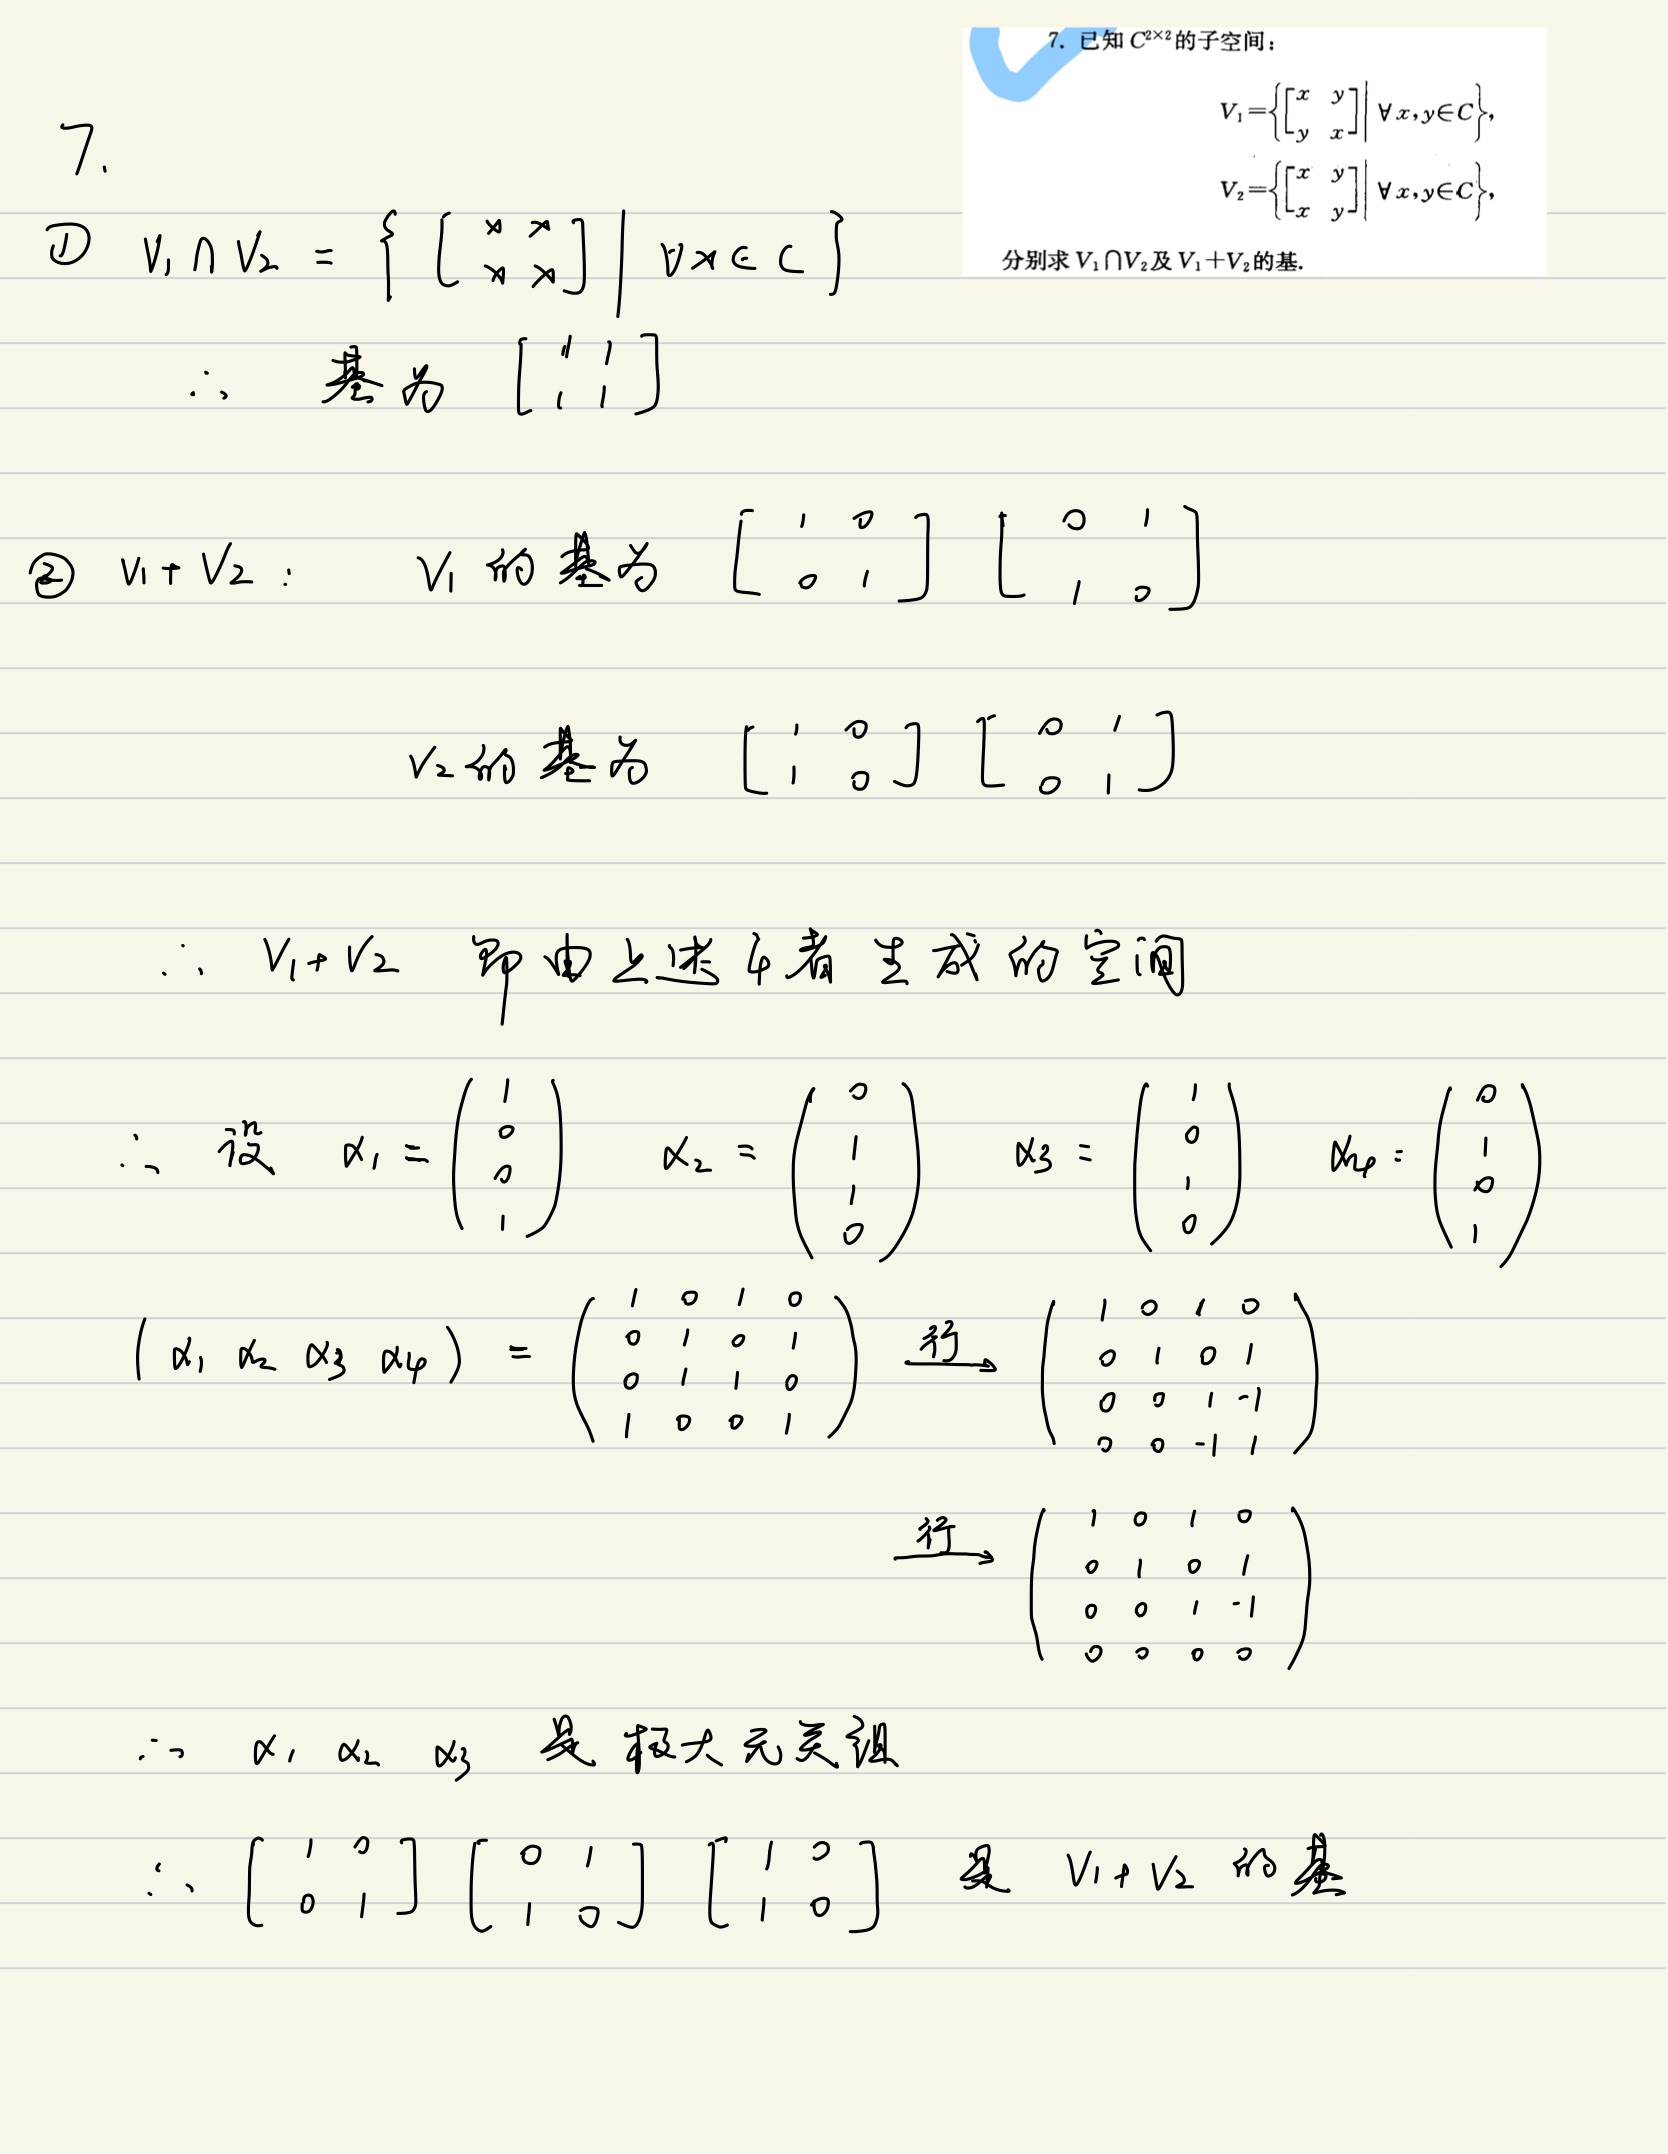 7. 已知 C²ˣ² 的子空间:
V₁={[x y; y x] | ∀x,y∈C},
V₂={[x y; x y] | ∀x,y∈C},
分别求 V₁∩V₂及 V₁+V₂的基.
7.
① V₁ ∩ V₂ = { [x x; x x] | ∀x∈C }
∴ 基为 [1 1; 1 1]
② V₁+V₂: V₁的基为 [1 0; 0 1] [0 1; 1 0]
V₂的基为 [1 0; 1 0] [0 1; 0 1]
∴ V₁+V₂ 即由上述4者生成的空间
∴ 设 α₁ = (1; 0; 0; 1) α₂ = (0; 1; 1; 0) α₃ = (1; 0; 1; 0) α₄ = (0; 1; 0; 1)
(α₁ α₂ α₃ α₄) = (1 0 1 0; 0 1 0 1; 0 1 1 0; 1 0 0 1) 行→ (1 0 1 0; 0 1 0 1; 0 0 1 -1; 0 0 -1 1)
行→ (1 0 1 0; 0 1 0 1; 0 0 1 -1; 0 0 0 0)
∴ α₁ α₂ α₃ 是极大无关组
∴ [1 0; 0 1] [0 1; 1 0] [1 0; 1 0] 是 V₁+V₂ 的基